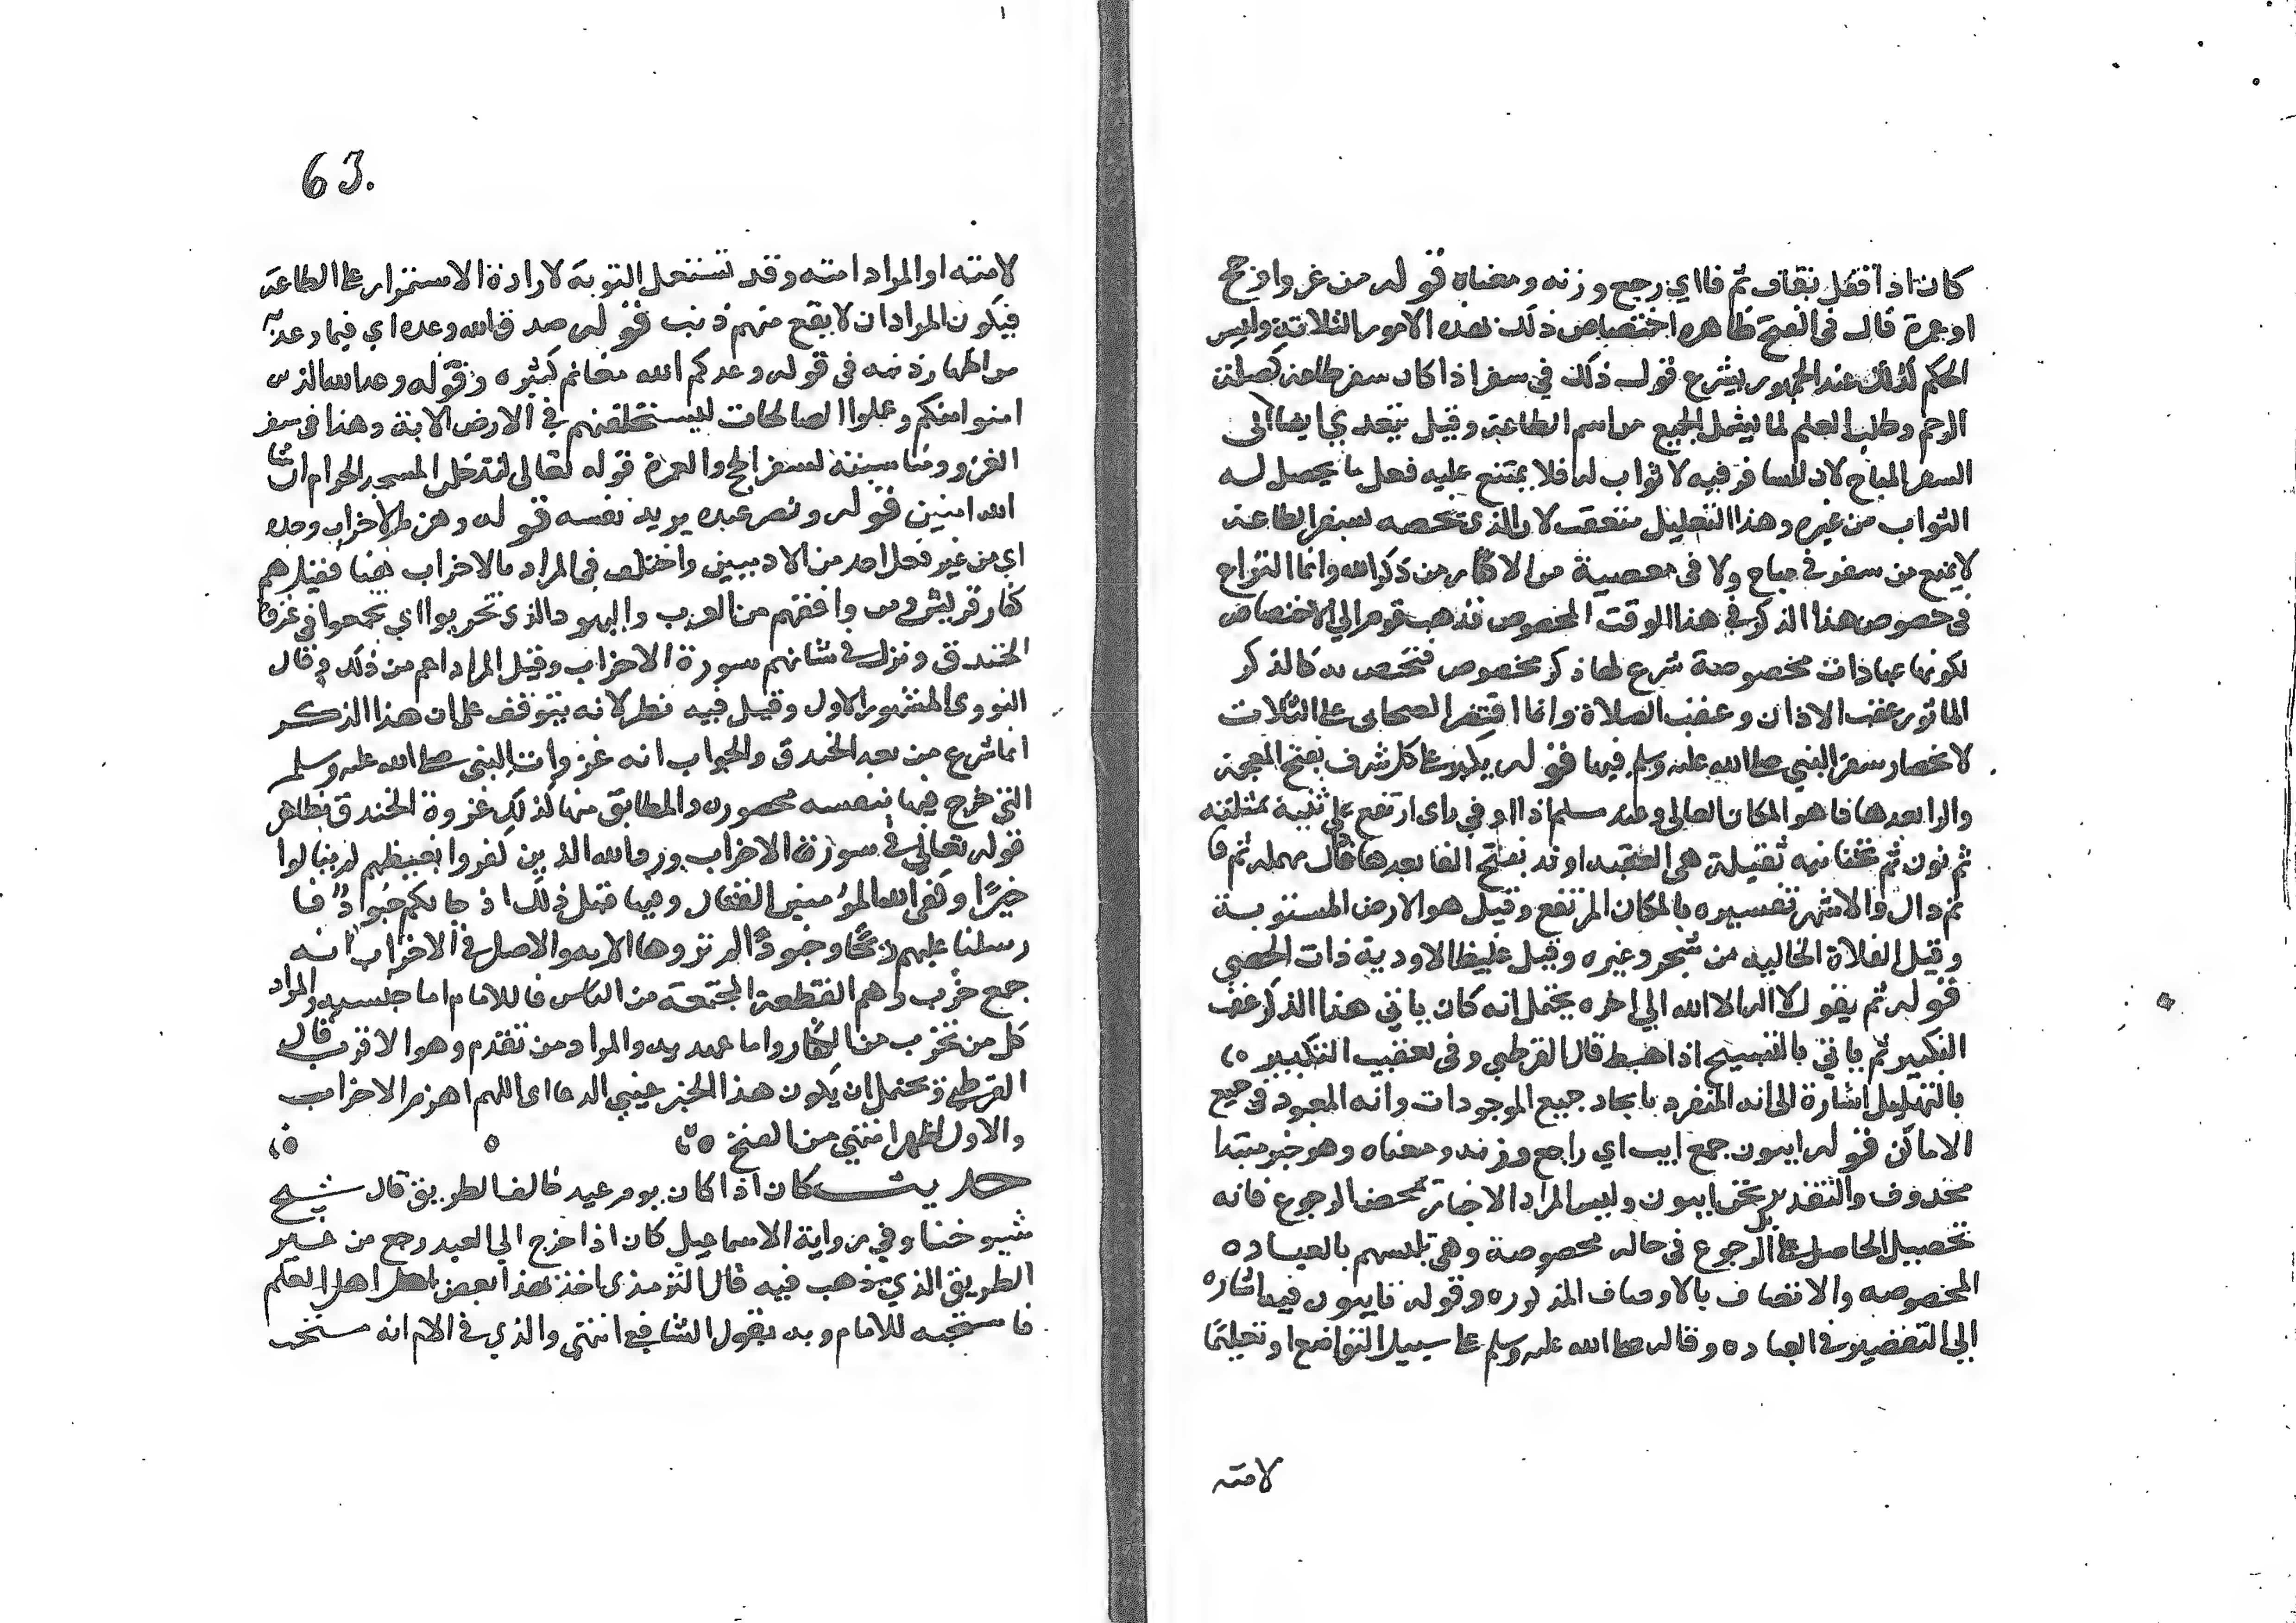 كان اذا قفل بقاف ثم فا اي رجع وزنه ومعناه قوله من غزو او حج
او عمرة قال في الفتح ظاهره اختصاص ذلك بهذه الامور الثلاثة وليس
الحكم كذلك عند الجمهور بل يشرع قول ذلك في سفر اذا كان سفر طاعة كصلة
الرحم وطلب العلم لما يشمل الجميع من اسم الطاعة وقيل يتعدي ايضا الى
السفر المباح لان المسافر فيه لا ثواب له فلا يمتنع عليه فعل ما يحصل له
الثواب من غيره وهذا التعليل متعقب لان الذي تخصه بسفر الطاعة
لا يمنع من سفر في مباح ولا في معصية من الاكثار من ذكر الله وانما النزاع
في خصوص هذا الذكر في هذا الوقت المخصوص فذهب قوم الي الاختصاص
لكونها عبادات مخصوصة شرع لها ذكر مخصوص فتختص به كالذكر
الماثور عقب الاذان وعقب الصلاة وانما اقتصر الصحابي على الثلاث
لانحصار سفر النبي صلى الله عليه وسلم فيها قوله يكبر على كل شرف بفتح المعجمة
والرا بعدها فا هو المكان العالي وعند مسلم اذا اوفي اي ارتفع على ثنية بمثلثة
ثم نون ثم تحتانيه ثقيلة هي العقبه او فدفد بفتح الفا بعدها دال مهمله ثم فا
ثم دال والاشهر تفسيره بالمكان المرتفع وقيل هو الارض المستوية
وقيل الفلاة الخاليه من شجر وغيره وقيل غليظ الاودية ذات الحصي
قوله ثم يقول لا اله الا الله الي اخره يحتمل انه كان ياتي هذا الذكر عقب
التكبير ثم ياتي بالتسبيح اذا هبط قال القرطبي وفي تعقيب التكبير
بالتهليل اشارة الى انه المنفرد بايجاد جميع الموجودات وانه المعبود في جميع
الاماكن قوله ايبون جمع ايب اي راجع وزنه ومعناه وهو خبر مبتدا
محذوف والتقدير نحن ايبون وليس المراد الاخبار بمحض الرجوع فانه
تحصيل الحاصل بل الرجوع في حاله مخصوصة وهي تلبسهم بالعباده
المخصوصه والاتصاف بالاوصاف المذكوره وقوله تايبون فيه اشاره
الي التقصير في العباده وقاله صلى الله عليه وسلم على سبيل التواضع او تعليمًا
لامته
63.
لامته او المراد امته وقد تستعمل التوبة لارادة الاستمرار على الطاعة
فيكون المراد ان لا يقع منهم ذنب قوله صدق الله وعده اي فيما وعد به
من اظهار دينه في قوله وعدكم الله مغانم كثيره وقوله وعد الله الذين
امنوا منكم وعملوا الصالحات ليستخلفنهم في الارض الاية وهذا في سفر
الغزو ومناسبته لسفر الحج والعمرة قوله تعالى لتدخلن المسجد الحرام ان شا
الله امنين قوله ونصر عبده يريد نفسه قوله وهزم الاحزاب وحده
اي من غير فعل احد من الادميين واختلف في المراد بالاحزاب هنا فقيل هم
كفار قريش ومن وافقهم من العرب واليهود الذي تحزبوا اي تجمعوا في غزوة
الخندق ونزل في شانهم سورة الاحزاب وقيل المراد اعم من ذلك وقال
النووي المشهور الاول وقيل فيه نظر لانه يتوقف على ان هذا الذكر
انما شرع من بعد الخندق والجواب انه غزوات النبي صلى الله عليه وسلم
التي خرج فيها بنفسه محصوره والمطابق منها لذلك غزوة الخندق بظاهر
قوله تعالي في سورة الاحزاب ورد الله الذين كفروا بغيظهم لم ينالوا
خيرًا وكفى الله المؤمنين القتال وفيها قبل ذلك اذ جاتكم جنودٌ فا
رسلنا عليهم ريحًا وجنودًا لم تروها الايه والاصل في الاحزاب انه
جمع حزب وهم القطعة المجتمعة من الناس فاللام اما جنسيه والمراد
كل من تحزب من الكفار واما عهديه والمراد من تقدم وهو الاقرب قال
القرطبي ويحتمل ان يكون هذا الخبر عيني الدعا اي اللهم اهزم الاحزاب
والاول اظهر انتهي من الفتح
حديث كان اذا كان يوم عيد خالف الطريق قال شيخ
شيوخنا وفي رواية الاسماعيلي كان اذا خرج الي العيد رجع من غير
الطريق الذي ذهب فيه قال الترمذي اخذ بهذا بعض اهل اهل العلم
فاستحبه للامام وبه يقول الشافعي انتهي والذي في الام انه مستحب